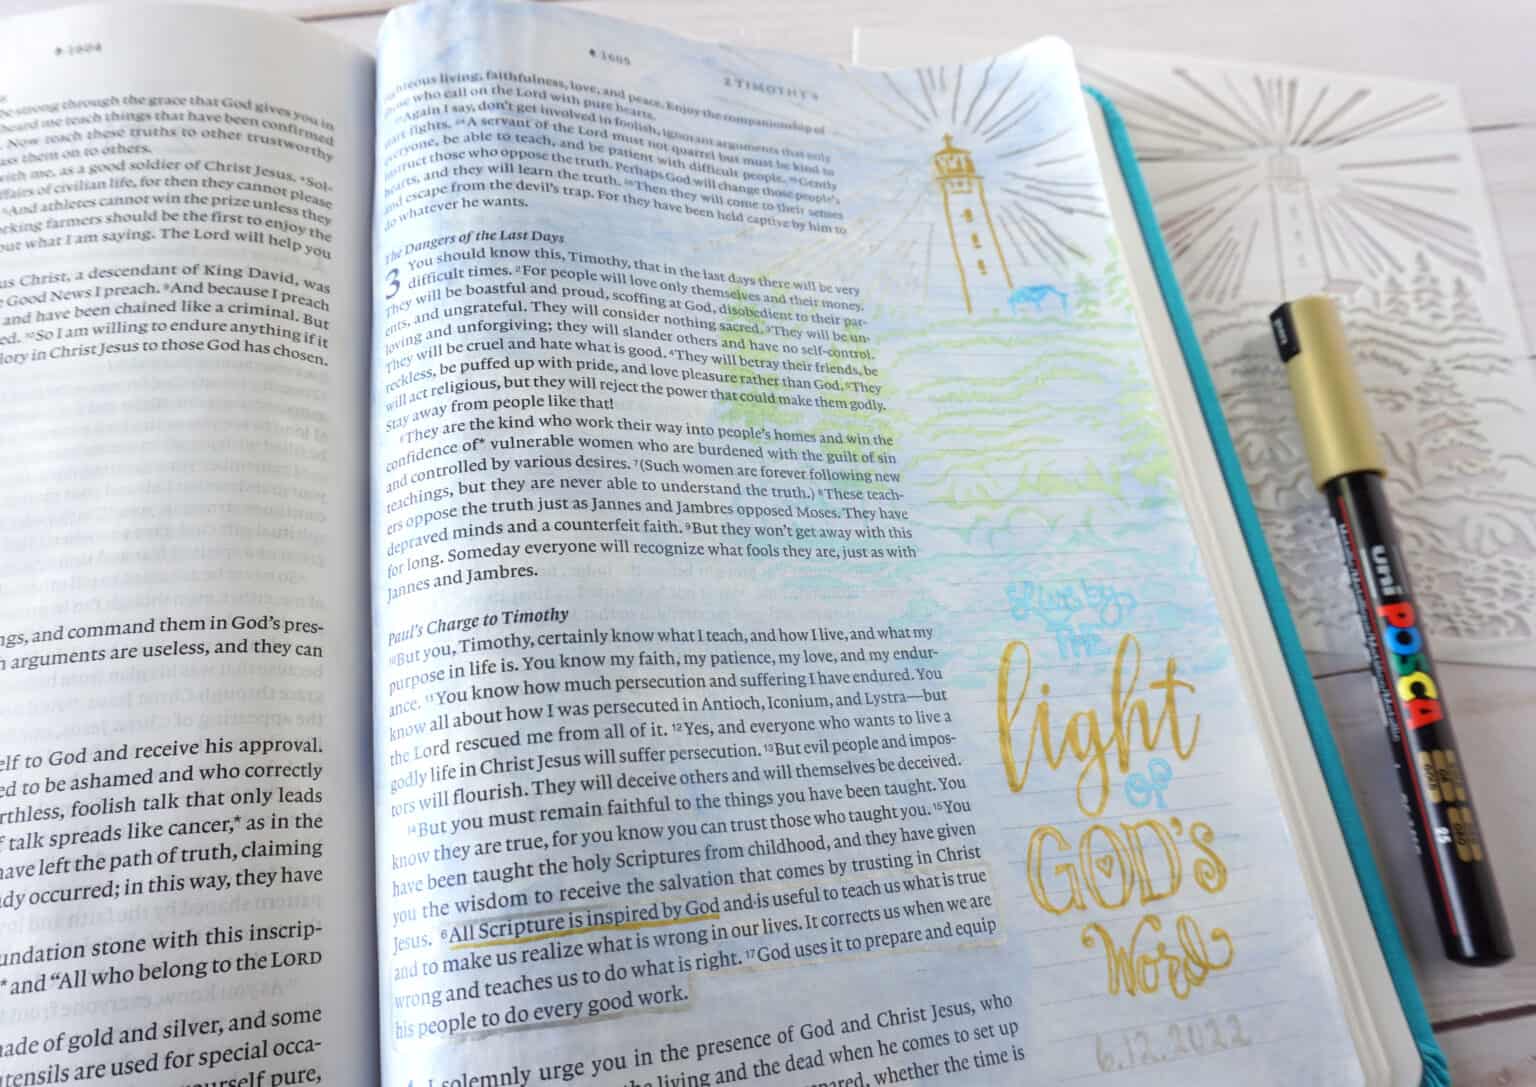 1604
be strong through the grace that God gives you in
heard me teach things that have been confirmed
Now teach these truths to other trustworthy
ass them on to others.
with me, as a good soldier of Christ Jesus. ⁴Sol-
ffairs of civilian life, for then they cannot please
⁵And athletes cannot win the prize unless they
rking farmers should be the first to enjoy the
out what I am saying. The Lord will help you
us Christ, a descendant of King David, was
e Good News I preach. ⁹And because I preach
and have been chained like a criminal. But
ed. ¹⁰So I am willing to endure anything if it
lory in Christ Jesus to those God has chosen.
ngs, and command them in God's pres-
h arguments are useless, and they can
elf to God and receive his approval.
ed to be ashamed and who correctly
rthless, foolish talk that only leads
f talk spreads like cancer,* as in the
have left the path of truth, claiming
dy occurred; in this way, they have
undation stone with this inscrip-
* and "All who belong to the LORD
made of gold and silver, and some
utensils are used for special occa-
yourself pure,
1605
2 TIMOTHY 4
righteous living, faithfulness, love, and peace. Enjoy the companionship of
those who call on the Lord with pure hearts.
²³Again I say, don't get involved in foolish, ignorant arguments that only
start fights. ²⁴A servant of the Lord must not quarrel but must be kind to
everyone, be able to teach, and be patient with difficult people. ²⁵Gently
instruct those who oppose the truth. Perhaps God will change those people's
hearts, and they will learn the truth. ²⁶Then they will come to their senses
and escape from the devil's trap. For they have been held captive by him to
do whatever he wants.
The Dangers of the Last Days
3 You should know this, Timothy, that in the last days there will be very
difficult times. ²For people will love only themselves and their money.
They will be boastful and proud, scoffing at God, disobedient to their par-
ents, and ungrateful. They will consider nothing sacred. ³They will be un-
loving and unforgiving; they will slander others and have no self-control.
They will be cruel and hate what is good. ⁴They will betray their friends, be
reckless, be puffed up with pride, and love pleasure rather than God. ⁵They
will act religious, but they will reject the power that could make them godly.
Stay away from people like that!
⁶They are the kind who work their way into people's homes and win the
confidence of* vulnerable women who are burdened with the guilt of sin
and controlled by various desires. ⁷(Such women are forever following new
teachings, but they are never able to understand the truth.) ⁸These teach-
ers oppose the truth just as Jannes and Jambres opposed Moses. They have
depraved minds and a counterfeit faith. ⁹But they won't get away with this
for long. Someday everyone will recognize what fools they are, just as with
Jannes and Jambres.
Paul's Charge to Timothy
¹⁰But you, Timothy, certainly know what I teach, and how I live, and what my
purpose in life is. You know my faith, my patience, my love, and my endur-
ance. ¹¹You know how much persecution and suffering I have endured. You
know all about how I was persecuted in Antioch, Iconium, and Lystra—but
the Lord rescued me from all of it. ¹²Yes, and everyone who wants to live a
godly life in Christ Jesus will suffer persecution. ¹³But evil people and impos-
tors will flourish. They will deceive others and will themselves be deceived.
¹⁴But you must remain faithful to the things you have been taught. You
know they are true, for you know you can trust those who taught you. ¹⁵You
have been taught the holy Scriptures from childhood, and they have given
you the wisdom to receive the salvation that comes by trusting in Christ
Jesus. ⁶All Scripture is inspired by God and is useful to teach us what is true
and to make us realize what is wrong in our lives. It corrects us when we are
wrong and teaches us to do what is right. ¹⁷God uses it to prepare and equip
his people to do every good work.
I solemnly urge you in the presence of God and Christ Jesus, who
the living and the dead when he comes to set up
whether the time is
live by
THE
light
OF
GOD'S
Word
6.12.2022
uni POSCA